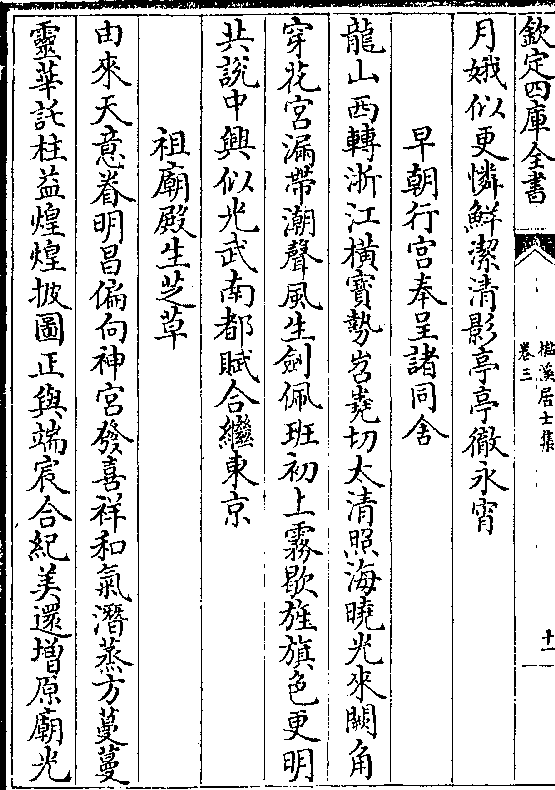 欽定四庫全書
檆溪居士集
卷三
十一
月娥似更憐鮮潔清影亭亭徹永宵
早朝行宫奉呈諸同舍
龍山西轉浙江橫寳勢岧嶤切太清照海曉光來闕角
穿花宮漏帶潮聲風生劒佩班初上霧歇旌旗色更明
共說中興似光武南都賦合繼東京
祖廟殿生芝草
由來天意眷明昌偏向神宮發喜祥和氣潛蒸方蔓蔓
靈華託柱益煌煌披圖正與端扆合紀美還增原廟光